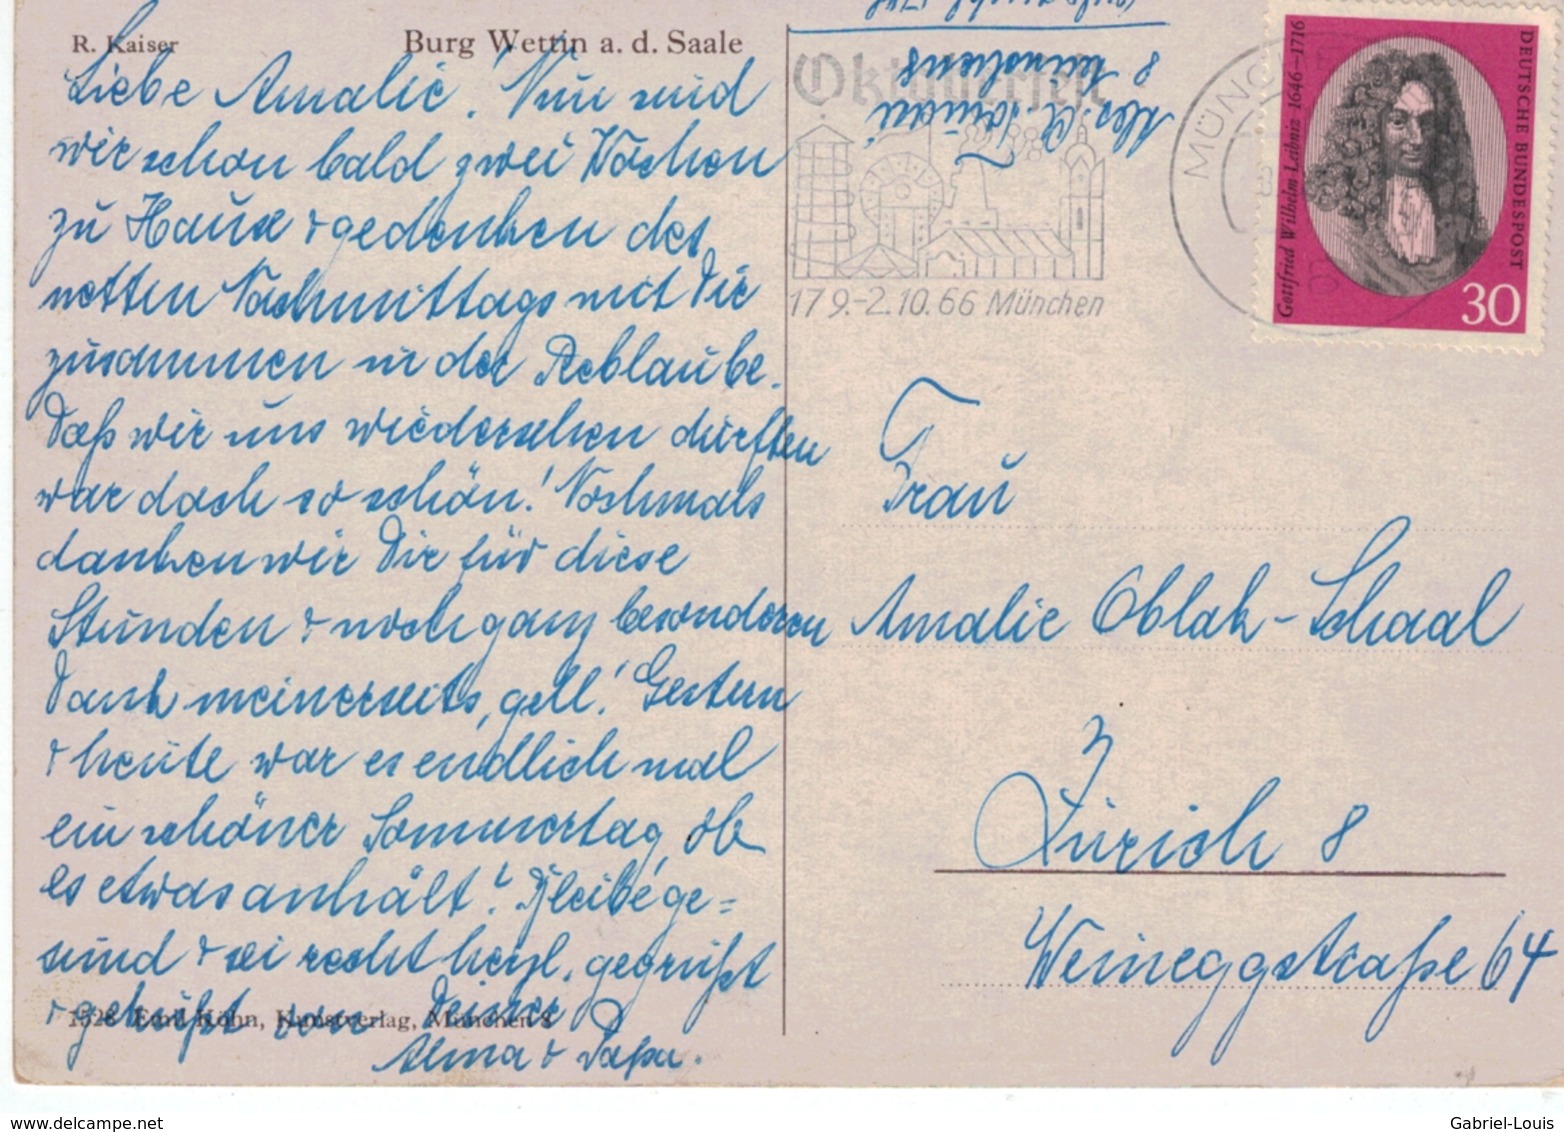 R. Kaiser
Burg Wettin a. d. Saale
Liebe Amalie! Nun sind
wir schon bald zwei Wochen
zu Hause & gedenken des
netten Nachmittags mit Dir
zusammen in der Reblaube.
Daß wir uns wiedersehen durften
war doch so schön! Nochmals
danken wir Dir für diese
Stunden & noch ganz besonderen
Dank meinerseits, gell! Gestern
& heute war es endlich mal
ein schöner Sommertag, ob
es etwas anhält? Bleibe ge=
sund & sei recht herzl. gegrüßt
& geküßt von Deiner
Alma &
1528 Emil Köhn, Kunstverlag, München 8
8 München
Oktoberfest
17 9.-2.10.66 München
MÜNCH
Gottfried Wilhelm Leibniz 1646-1716
DEUTSCHE BUNDESPOST
30
Frau
Amalie Oblak-Schaal
Zürich 8
Weineggstraße 64
Gabriel-Louis
www.delcampe.net